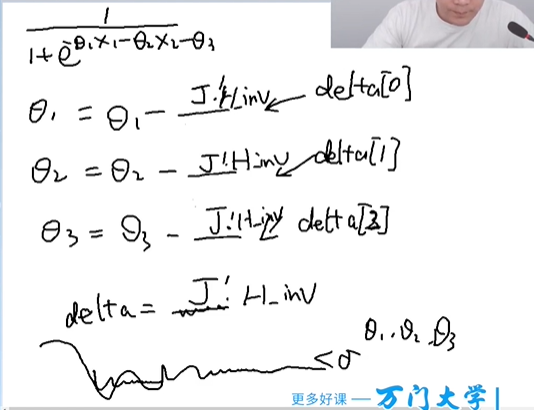 1
1+e^-θ1x1-θ2x2-θ3
θ1 = θ1 - J'.H_inv delta[0]
θ2 = θ2 - J'.H_inv delta[1]
θ3 = θ3 - J'.H_inv delta[2]
delta = J'. H_inv
<σ θ1..θ2.θ3
更多好课 — 万门大学